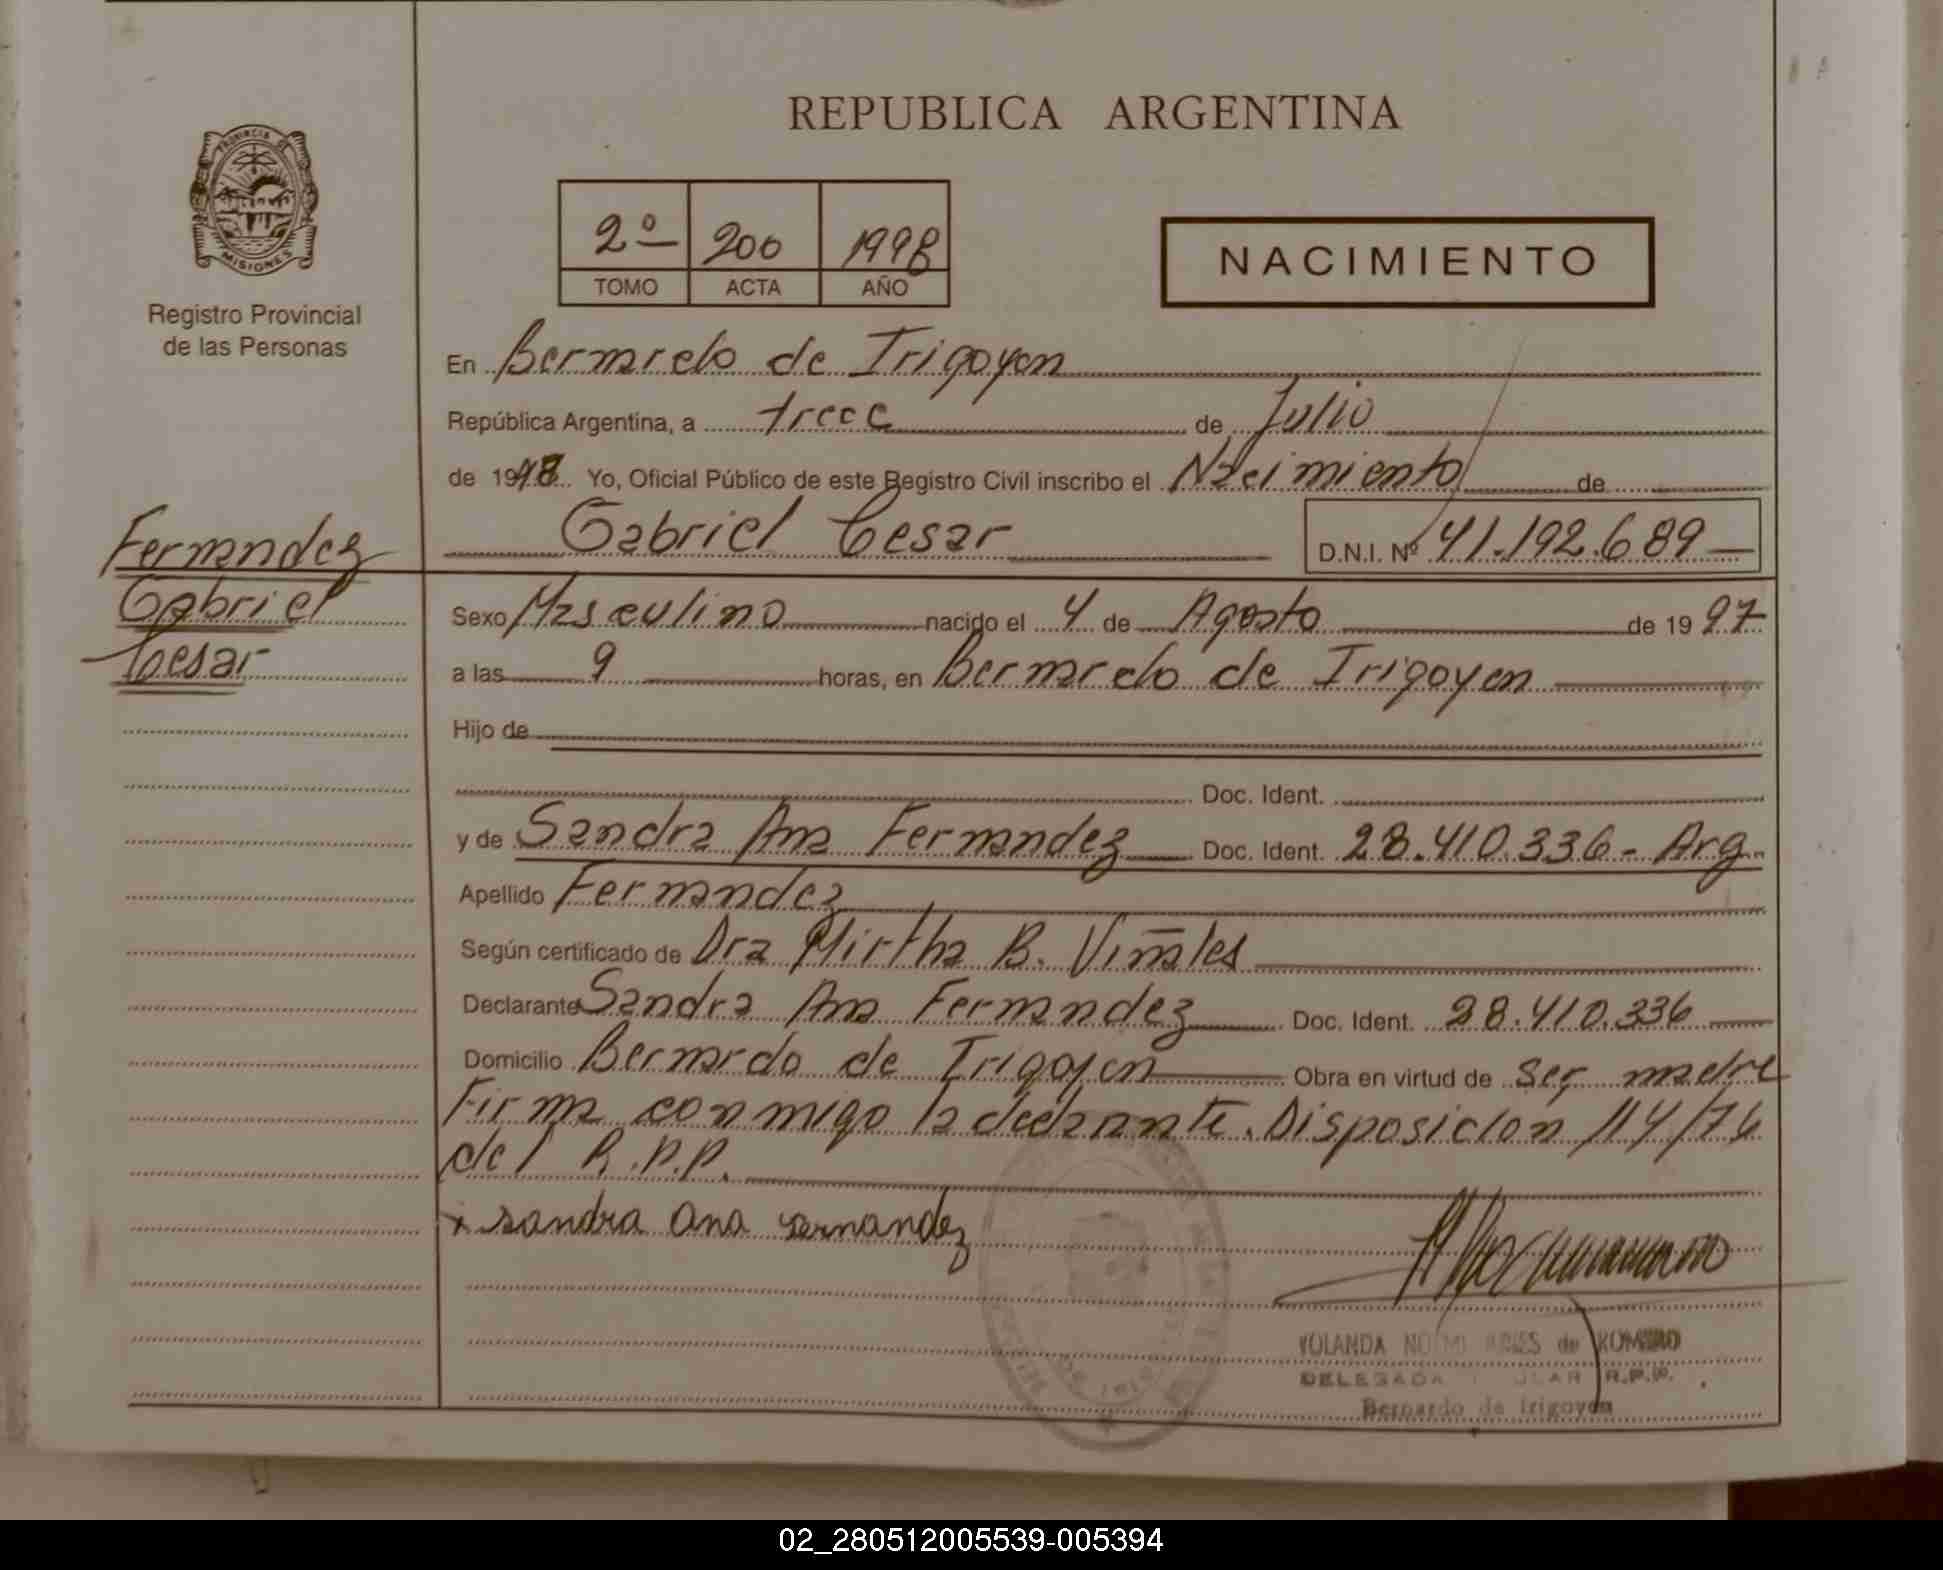 REPUBLICA ARGENTINA
PROVINCIA DE
MISIONES
Registro Provincial
de las Personas
2º 200 1998
TOMO ACTA AÑO
NACIMIENTO
En Bernardo de Irigoyen
República Argentina, a trece de Julio
de 1998 Yo, Oficial Público de este Registro Civil inscribo el Nacimiento de
Gabriel Cesar D.N.I. Nº 41.192.689
Fernandez
Gabriel
Cesar
Sexo Masculino nacido el 4 de Agosto de 1997
a las 9 horas, en Bernardo de Irigoyen
Hijo de
Doc. Ident.
y de Sandra Ana Fernandez Doc. Ident. 28.410.336- Arg.
Apellido Fernandez
Según certificado de Dra Mirtha B. Viñales
Declarante Sandra Ana Fernandez Doc. Ident. 28.410.336
Domicilio Bernardo de Irigoyen Obra en virtud de ser madre
Firma conmigo la declarante. Disposición 114/76
del R.P.P.
x sandra ana fernandez
YOLANDA de
DELEGADA R.P.P.
Bernardo de Irigoyen
02_280512005539-005394